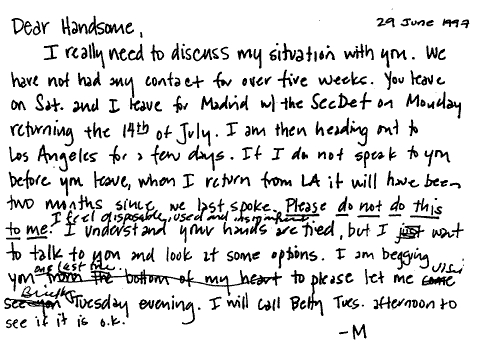 Dear Handsome,
29 June 1997
I really need to discuss my situation with you. We
have not had any contact for over five weeks. You leave
on Sat. and I leave for Madrid w/ the SecDef on Monday
returning the 14th of July. I am then heading out to
Los Angeles for a few days. If I do not speak to you
before you leave, when I return from LA it will have been
two months since we last spoke. Please do not do this
I feel disposable, used and insignificant.
to me. I understand your hands are tied, but I just want
to talk to you and look at some options. I am begging
one last time
you from the bottom of my heart to please let me come visit
Briefly
see you Tuesday evening. I will call Betty Tues. afternoon to
see if it is o.k.
-M